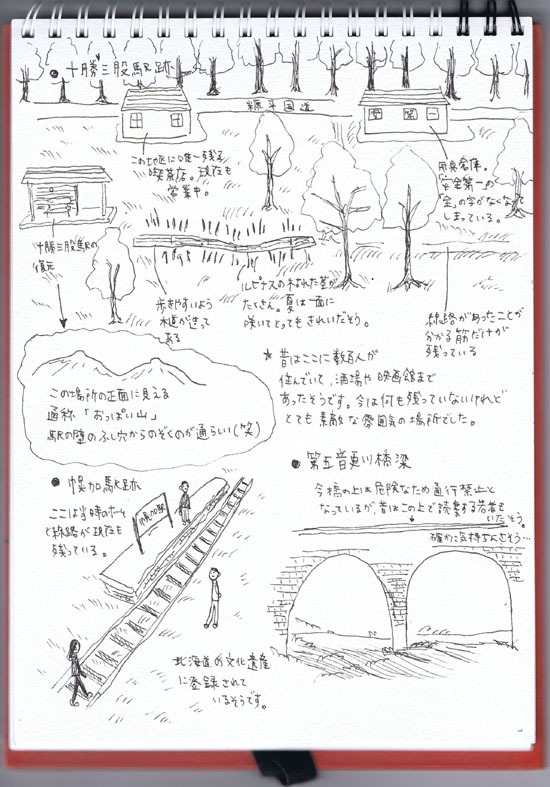 ● 十勝三股駅跡
糠平国道
この地区に唯一残る
喫茶店。現在も
営業中。
用具倉庫。
"安全第一"の
"全"の字がなくなって
しまっている。
十勝三股駅の
復元
歩きやすいよう
木道が造って
ある
ルピナスの枯れた茎が
たくさん。夏は一面に
咲いてとってもきれいだそう。
線路があったことが
分かる筋だけが
残っている
この場所の正面に見える
通称「おっぱい山」
駅の壁のふし穴からのぞくのが通らしい(笑)
★ 昔はここに数百人が
住んでいて、酒場や映画館まで
あったそうです。今は何も残っていないけれど
とても素敵な雰囲気の場所でした。
● 幌加駅跡
ここは当時のホーム
と線路が現在も
残っている。
幌加駅
北海道の文化遺産
に登録されて
いるそうです。
● 第五音更川橋梁
今橋の上は危険なため通行禁止と
なっているが、昔はこの上で読書する若者も
いたそう。
確かに気持ちよさそう…